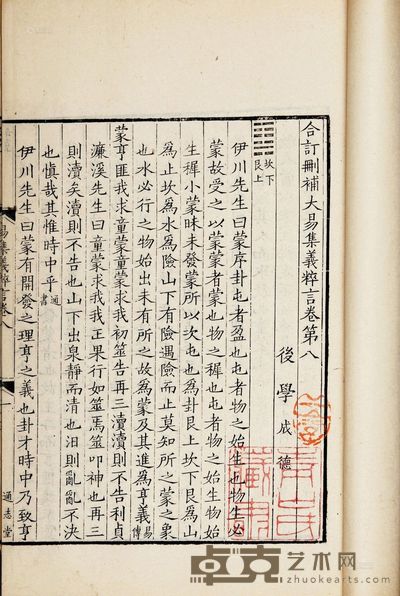 合訂刪補大易集義粹言卷第八
後學 成德
坎下
艮上
伊川先生曰蒙序卦屯者盈也屯者物之始生也物生必
蒙故受之以蒙蒙者蒙也物之穉也屯者物之始生物始
生穉小蒙昧未發蒙所以次屯也爲卦艮上坎下艮爲山
爲止坎爲水爲險山下有險遇險而止莫知所之蒙之象
也水必行之物始出未有所之故爲蒙及其進爲亨義易傳
蒙亨匪我求童蒙童蒙求我初筮告再三瀆瀆則不告利貞
濂溪先生曰童蒙求我我正果行如筮焉筮叩神也再三
則瀆矣瀆則不告也山下出泉靜而清也汨則亂亂不決
也慎哉其惟時中乎通書
伊川先生曰蒙有開發之理亨之義也卦才時中乃致亨
易集義粹言卷八
一
通志堂
卓克艺术网
zhuokearts.com